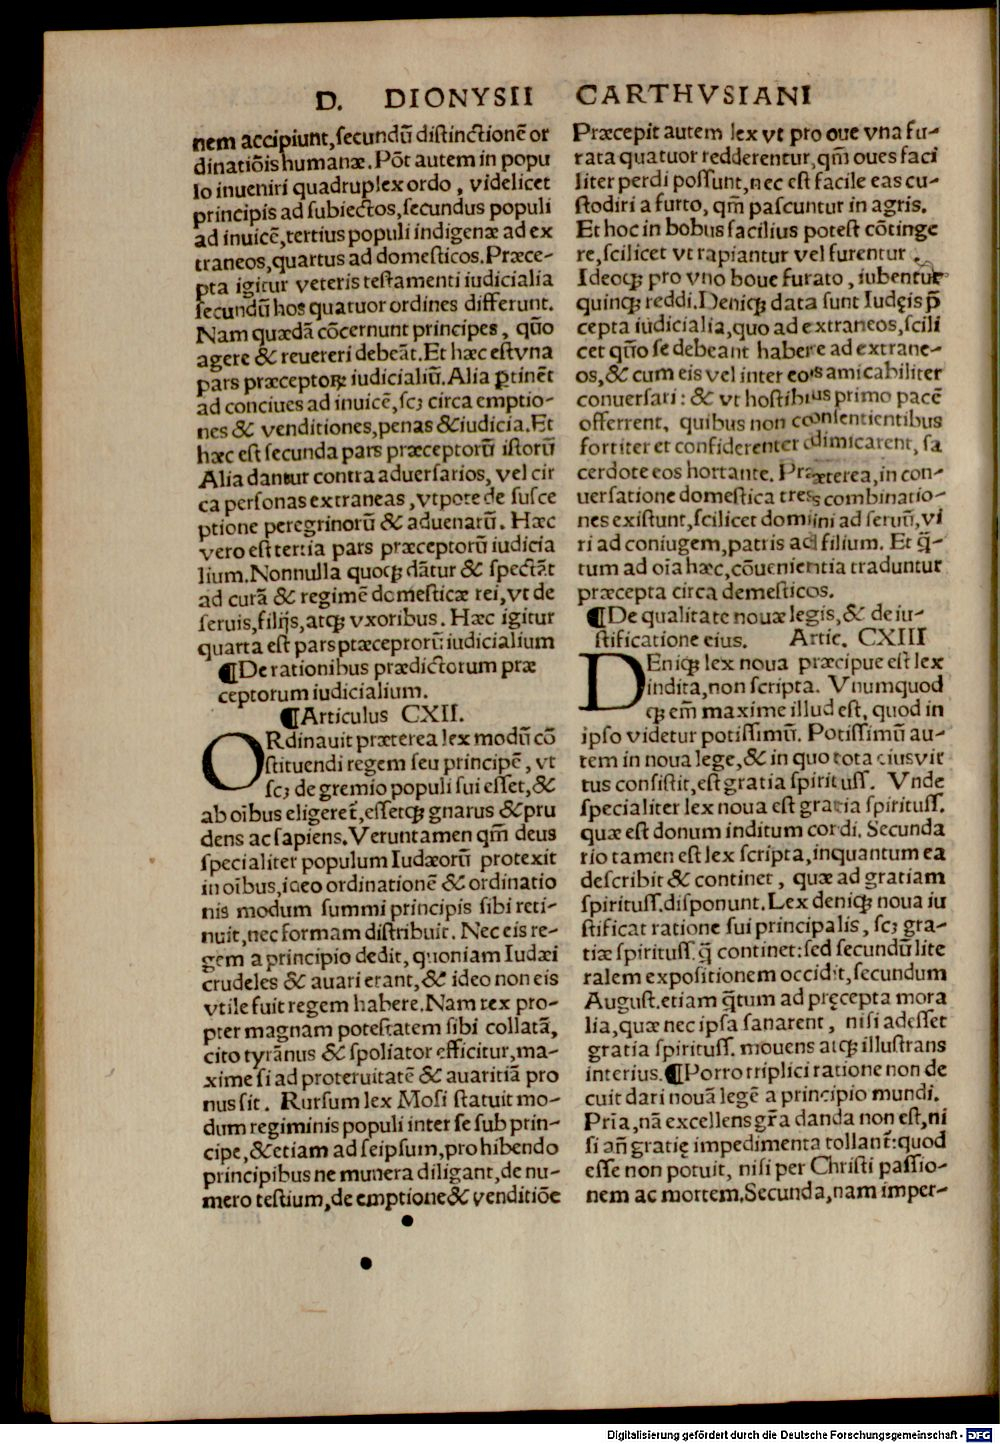 D. DIONYSII CARTHVSIANI
nem accipiunt, secundū distinctionē or
dinatiōis humanæ. Pōt autem in popu
lo inueniri quadruplex ordo, videlicet
principis ad subiectos, secundus populi
ad inuicē, tertius populi indigenæ ad ex
traneos, quartus ad domesticos. Præce-
pta igitur veteris testamenti iudicialia
secundū hos quatuor ordines differunt.
Nam quædā cōcernunt principes, quō
agere & reuereri debeāt. Et hæc est vna
pars præceptoꝝ iudicialiū. Alia ꝑtinēt
ad conciues ad inuicē, scꝫ circa emptio-
nes & venditiones, penas & iudicia. Et
hæc est secunda pars præceptorū istorū
Alia dantur contra aduersarios, vel cir
ca personas extraneas, vtpote de susce
ptione peregrinorū & aduenarū. Hæc
vero est tertia pars præceptorū iudicia
lium. Nonnulla quoqꝫ dātur & spectāt
ad curā & regimē domesticæ rei, vt de
seruis, filijs, atqꝫ vxoribus. Hæc igitur
quarta est pars præceptorū iudicialium
¶De rationibus prædictorum præ
ceptorum iudicialium.
¶Articulus CXII.
ORdinauit præterea lex modū cō
stituendi regem seu principē, vt
scꝫ de gremio populi sui esset, &
ab oībus eligeret̄, essetqꝫ gnarus & pru
dens ac sapiens. Veruntamen qm̄ deus
specialiter populum Iudæorū protexit
in oībus, ideo ordinationē & ordinatio
nis modum summi principis sibi reti-
nuit, nec formam distribuit. Nec eis re-
gem a principio dedit, quoniam Iudæi
crudeles & auari erant, & ideo non eis
vtile fuit regem habere. Nam rex pro-
pter magnam potestatem sibi collatā,
cito tyrānus & spoliator efficitur, ma-
xime si ad proteruitatē & auaritiā pro
nus sit. Rursum lex Mosi statuit mo-
dum regiminis populi inter se sub prin-
cipe, & etiam ad seipsum, prohibendo
principibus ne munera diligant, de nu-
mero testium, de emptione & venditiōe
Præcepit autem lex vt pro oue vna fu-
rata quatuor redderentur, qm̄ oues faci
liter perdi possunt, nec est facile eas cu-
stodiri a furto, qm̄ pascuntur in agris.
Et hoc in bobus facilius potest cōtinge
re, scilicet vt rapiantur vel furentur.
Ideoqꝫ pro vno boue furato, iubentur
quinqꝫ reddi. Deniqꝫ data sunt Iudęis p̄
cepta iudicialia, quo ad extraneos, scili
cet quō se debeant habere ad extrane-
os, & cum eis vel inter eos amicabiliter
conuersari: & vt hostibus primo pacē
offerrent, quibus non consentientibus
fortiter et confiderenter dimicarent, sa
cerdote eos hortante. Præterea, in con-
uersatione domestica tres combinatio-
nes existunt, scilicet domini ad seruū, vi
ri ad coniugem, patris ad filium. Et q̄-
tum ad oīa hæc, cōuenientia traduntur
præcepta circa demesticos.
¶De qualitate nouæ legis, & de iu-
stificatione eius. Artic. CXIII
DEniqꝫ lex noua præcipue est lex
indita, non scripta. Vnumquod
qꝫ em̄ maxime illud est, quod in
ipso videtur potissimū. Potissimū au-
tem in noua lege, & in quo tota eius vir
tus consistit, est gratia spiritussꝭ. Vnde
specialiter lex noua est gratia spiritussꝭ.
quæ est donum inditum cordi. Secunda
rio tamen est lex scripta, inquantum ea
describit & continet, quæ ad gratiam
spiritussꝭ. disponunt. Lex deniqꝫ noua iu
stificat ratione sui principalis, scꝫ gra-
tiæ spiritussꝭ. q̄ continet: sed secundū lite
ralem expositionem occidit, secundum
August. etiam q̄tum ad pręcepta mora
lia, quæ nec ipsa sanarent, nisi adesset
gratia spiritussꝭ. mouens atqꝫ illustrans
interius. ¶Porro triplici ratione non de
cuit dari nouā legē a principio mundi.
Prīa, nā excellens gr̄a danda non est, ni
si an̄ gratię impedimenta tollant̄: quod
esse non potuit, nisi per Christi passio-
nem ac mortem. Secunda, nam imper-
Digitalisierung gefördert durch die Deutsche Forschungsgemeinschaft - DFG